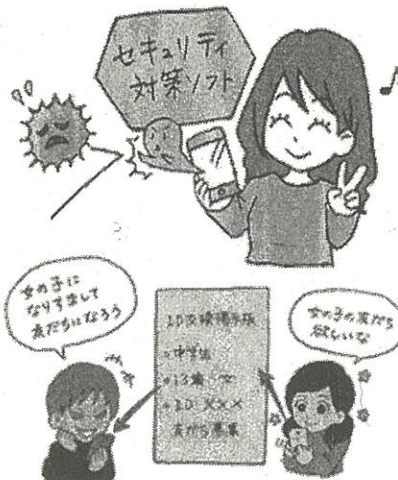 セキュリティ
対策ソフト
女の子に
なりすまして
友だちになろう
ID交換掲示板
・中学生
・13歳 女
・ID XXX
友だち募集
女の子の友だち
欲しいな